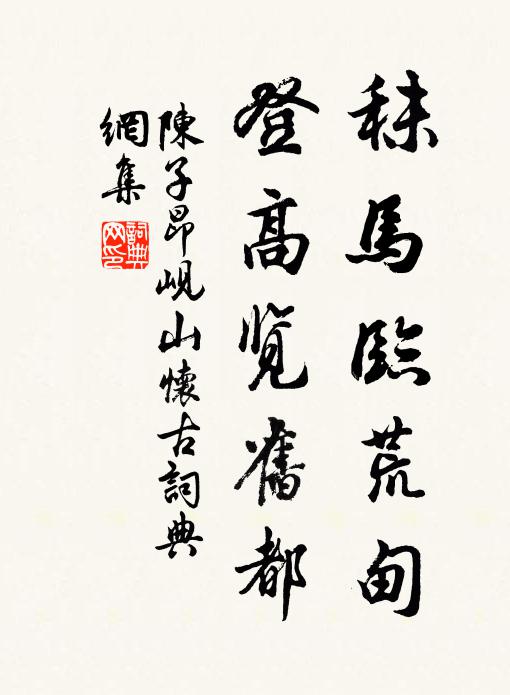 秣馬臨荒甸
登高覽舊都
陳子昂峴山懷古詞典
網集
詞典
網印